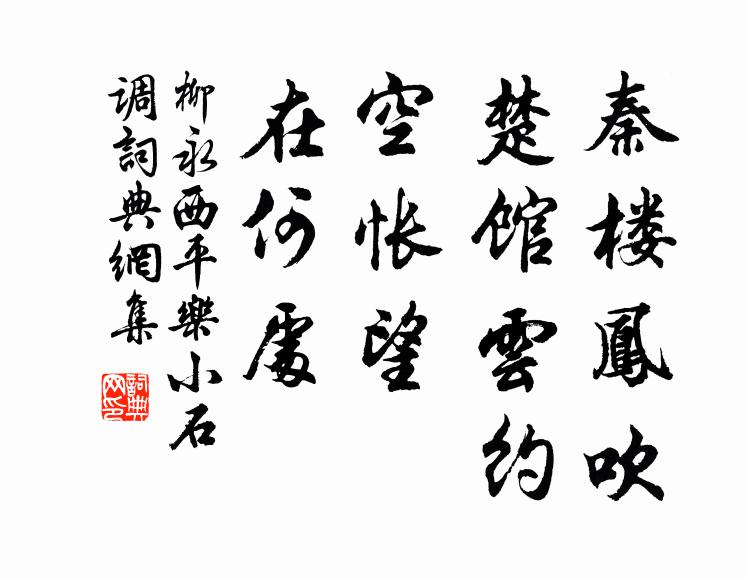 秦楼鳳吹
楚馆雲约
空怅望
在何處
柳永西平樂小石
调詞典網集
詞典网印